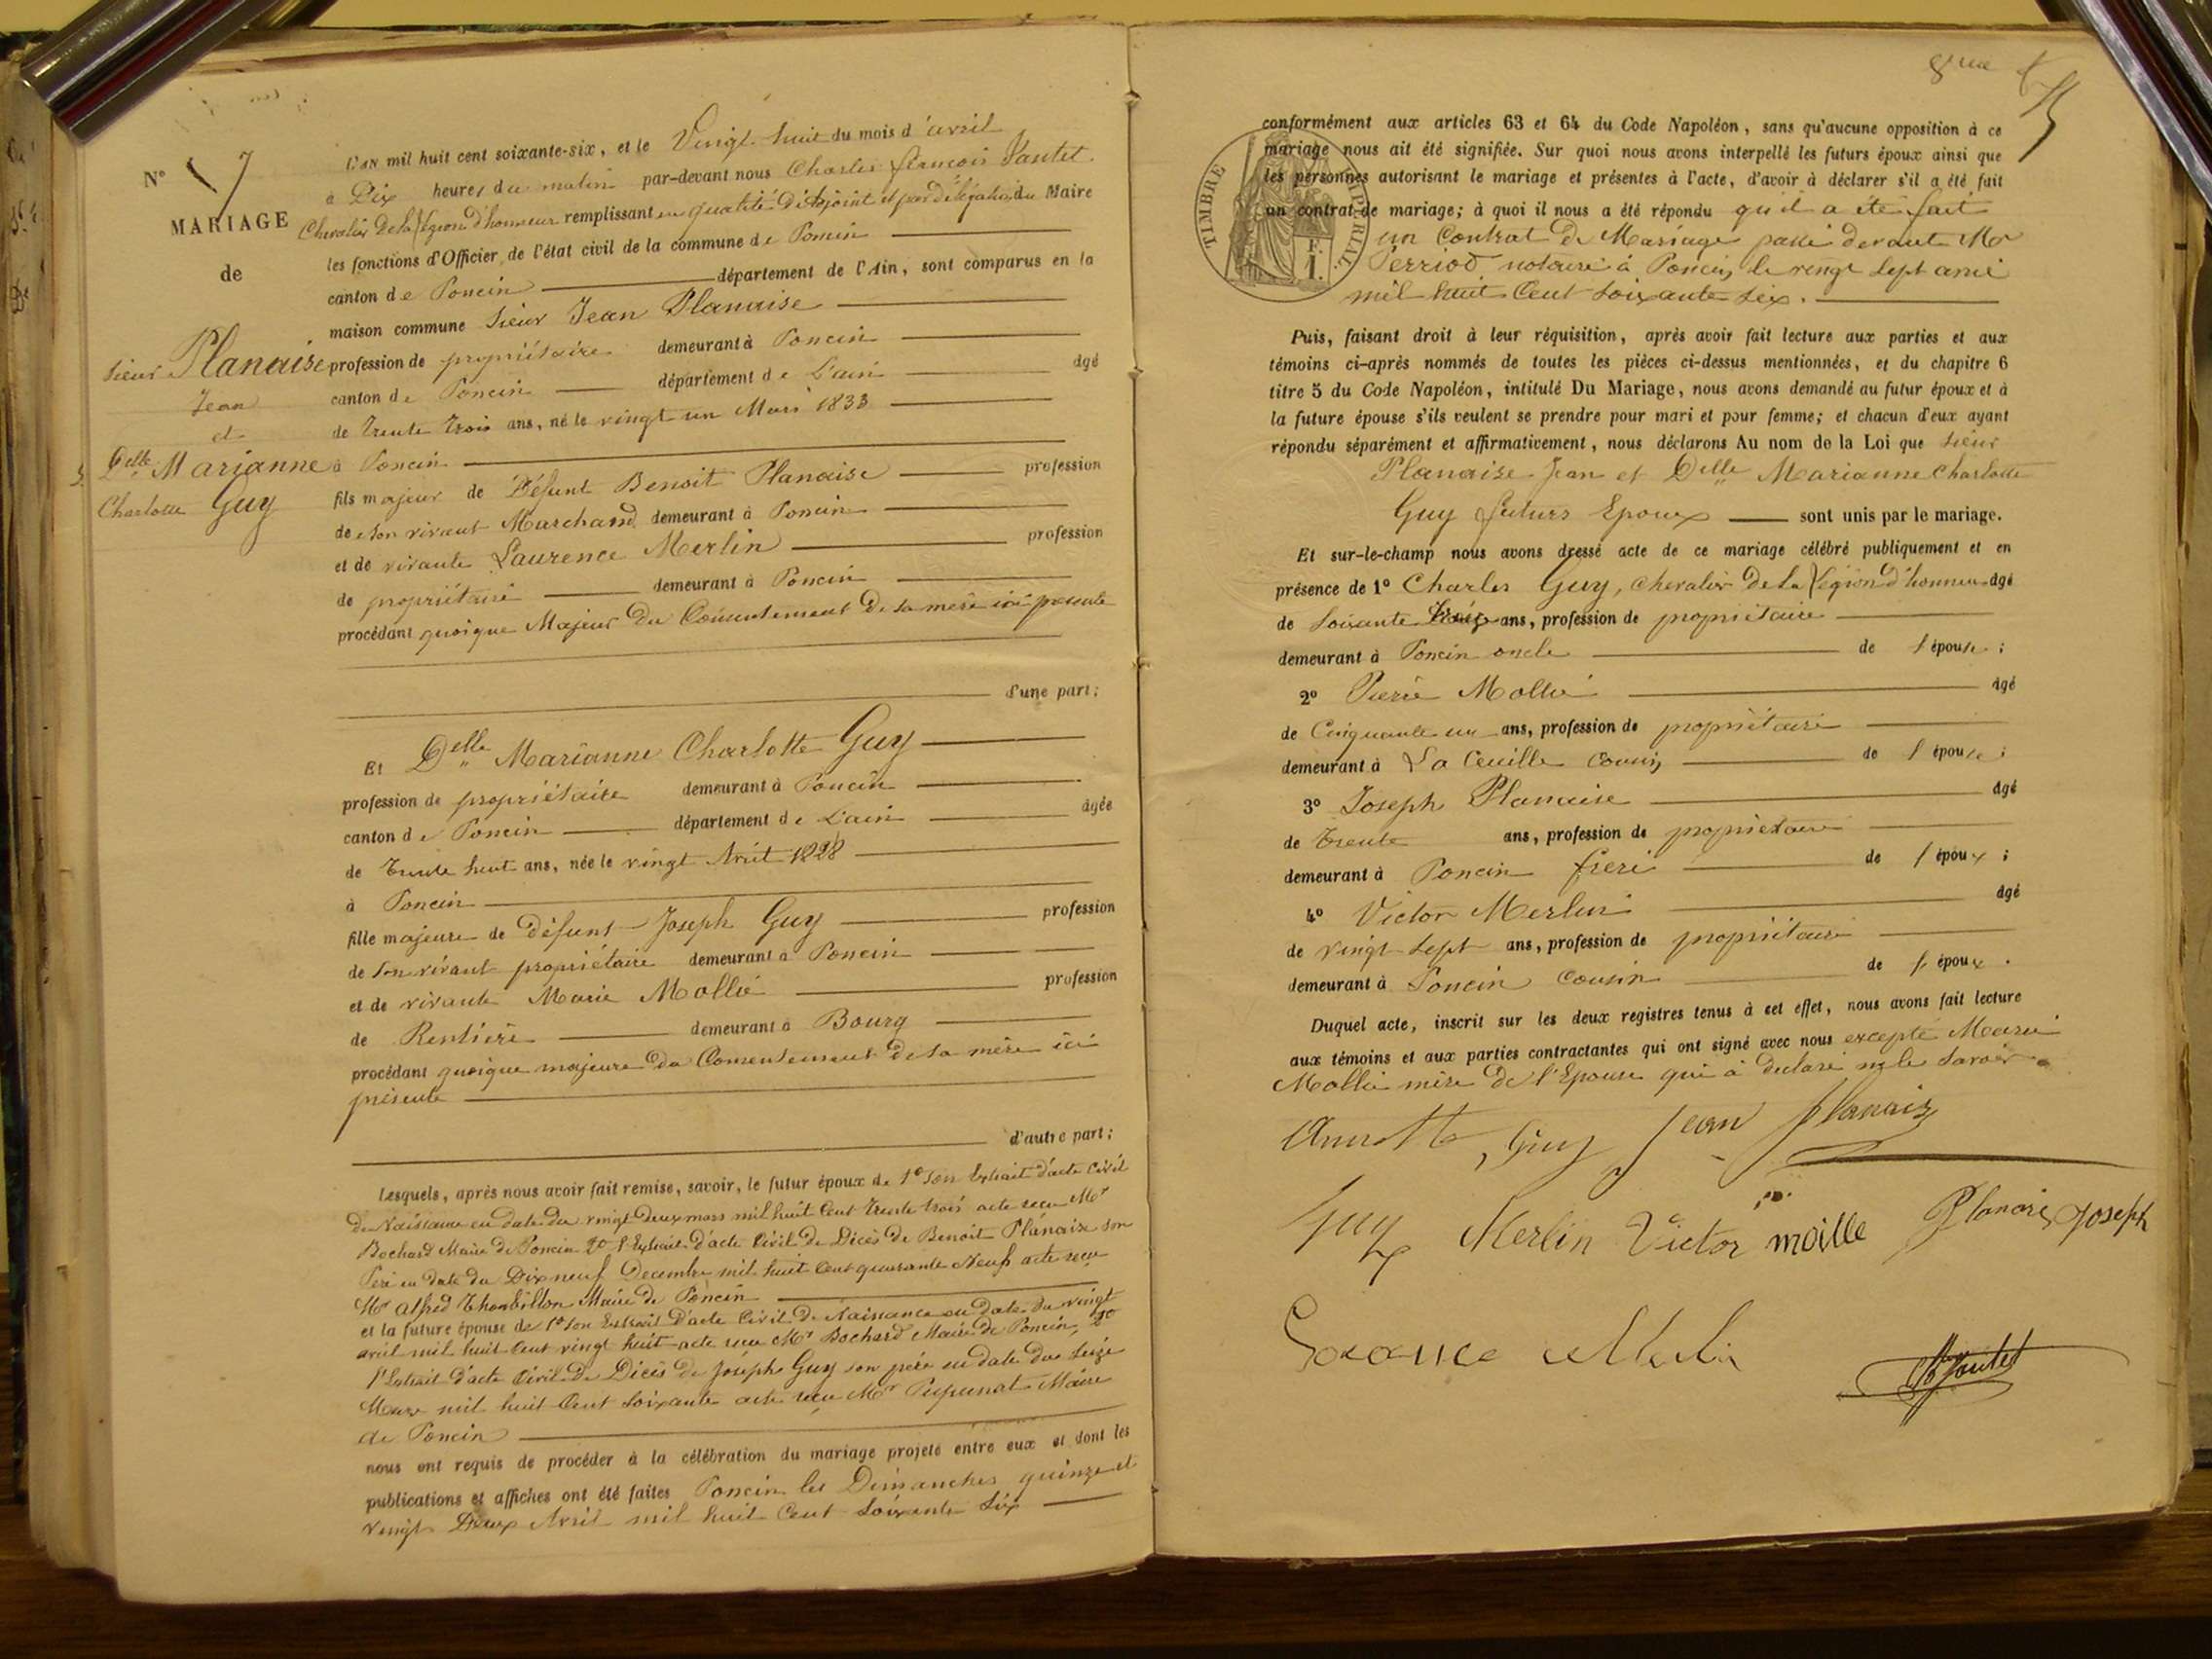 N° 7
MARIAGE
de
Sieur Planaise
Jean
et
Delle Marianne
Charlotte Guy
L'AN mil huit cent soixante-six, et le Vingt huit du mois d'avril
à Dix heures du matin par-devant nous Charles françois
Chevalier de la Légion d'honneur remplissant en qualité d'adjoint et par délégation du Maire
les fonctions d'Officier de l'état civil de la commune de Poncin
canton de Poncin département de l'Ain, sont comparus en la
maison commune Sieur Jean Planaise
profession de propriétaire demeurant à Poncin
canton de Poncin département de L'ain âgé
de trente trois ans, né le vingt un Mars 1833
à Poncin
fils majeur de Défunt Benoit Planaise profession
de son vivant Marchand demeurant à Poncin
et de vivante Laurence Merlin profession
de propriétaire demeurant à Poncin
procédant quoique Majeur du Consentement de sa mère ici présente
d'une part;
Et Delle Marianne Charlotte Guy
profession de propriétaire demeurant à Poncin
canton de Poncin département de L'ain âgée
de trente huit ans, née le vingt Avril 1828
à Poncin
fille majeure de défunt Joseph Guy profession
de son vivant propriétaire demeurant à Poncin
et de vivante Marie Mollié profession
de Rentière demeurant à Bourg
procédant quoique majeure du Consentement de sa mère ici
présente
d'autre part;
Lesquels, après nous avoir fait remise, savoir, le futur époux de 1° son Extrait d'acte civil
de Naissance en date du vingt deux mars mil huit Cent trente trois acte reçu Mr
Bochard Maire de Poncin 2° l'Extrait d'acte Civil de Décès de Benoit Planaise son
Père en date du Dix neuf Decembre mil huit Cent quarante Neuf acte reçu
Mr Alfred Thombillon Maire de Poncin
et la future épouse de 1° son Extrait d'acte Civil de Naissance en date du vingt
avril mil huit Cent vingt huit acte reçu Mr Bochard Maire de Poncin, 2°
l'Extrait d'acte Civil de Décès de Joseph Guy son père en date du Seize
Mars mil huit Cent soixante acte reçu Mr Pupunat Maire
de Poncin
nous ont requis de procéder à la célébration du mariage projeté entre eux et dont les
publications et affiches ont été faites Poncin les Dimanches quinze et
vingt Deux Avril mil huit Cent Soixante Six
TIMBRE IMPERIAL
F.
1.
conformément aux articles 63 et 64 du Code Napoléon, sans qu'aucune opposition à ce
mariage nous ait été signifiée. Sur quoi nous avons interpellé les futurs époux ainsi que
les personnes autorisant le mariage et présentes à l'acte, d'avoir à déclarer s'il a été fait
un contrat de mariage; à quoi il nous a été répondu qu'il a été fait
un Contrat de Mariage passé devant Mr
Perriod notaire à Poncin le vingt Sept avril
mil huit Cent Soixante Six.
Puis, faisant droit à leur réquisition, après avoir fait lecture aux parties et aux
témoins ci-après nommés de toutes les pièces ci-dessus mentionnées, et du chapitre 6
titre 5 du Code Napoléon, intitulé Du Mariage, nous avons demandé au futur époux et à
la future épouse s'ils veulent se prendre pour mari et pour femme; et chacun d'eux ayant
répondu séparément et affirmativement, nous déclarons Au nom de la Loi que Sieur
Planaise Jean et Delle Marianne Charlotte
Guy futurs Epoux sont unis par le mariage.
Et sur-le-champ nous avons dressé acte de ce mariage célébré publiquement et en
présence de 1° Charles Guy, Chevalier de la Légion d'honneur âgé
de Soixante ans, profession de propriétaire
demeurant à Poncin oncle de l'épouse;
2° Pierre Mollié âgé
de Cinquante un ans, profession de propriétaire
demeurant à La Cueille Cousin de l'épouse;
3° Joseph Planaise âgé
de trente ans, profession de propriétaire
demeurant à Poncin frère de l'époux;
4° Victor Merlin âgé
de vingt sept ans, profession de propriétaire
demeurant à Poncin Cousin de l'époux.
Duquel acte, inscrit sur les deux registres tenus à cet effet, nous avons fait lecture
aux témoins et aux parties contractantes qui ont signé avec nous excepté Marie
Mollié mère de l'Epouse qui à declaré ne le Savoir
Guy Jean planaise
Guy Merlin Victor moille Planaise Joseph